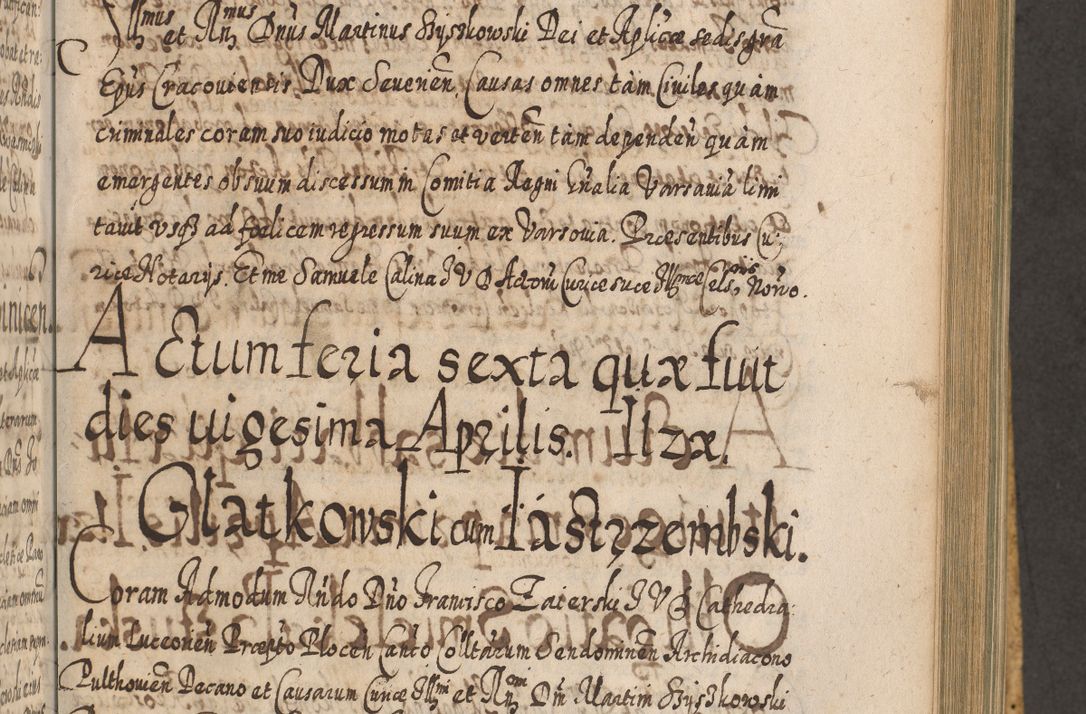 Illmus et Rndmus Dnus Martinus Szyszkowski Dei et Aplicæ sedis grã
Eps Cracoviensis Dux Severien. Causas omnes tàm Civiles quàm
criminales coram suo iudicio motas et verten tàm dependen quàm
emergentes ob suum discessum in Comitia Regni Gnalia Varsaviã limi
tavit vsq ad foelicem regressum suum ex Varsovia. Præsentibus Cu,
riæ Notarijs. Et me Samuele Calina I V D Actorũ Curiæ suæ Illmæ Celsnis Notrio.
Actum feria sexta quæ fuit
dies uigesima Aprilis. Ilzæ.
Glatkowski cum Iastrzembski.
Coram Admodum Rndo Dno Francisco Zaierski I V D Cathedra:
lium Luceorien Præpto Plocen Canco Colltarum Sendomirien Archidiacono
Pulthovien Decano et Causarum Curiæ Illmi et Rndmi Dni Martini Szyszkowski